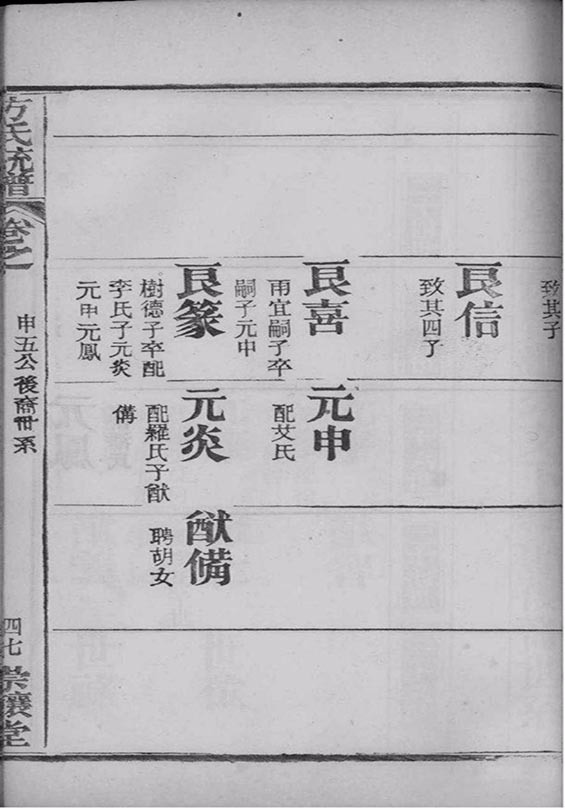 致其子
良信
致其四子
良喜
雨宜嗣子卒
嗣子元申
元申
配艾氏
良篆
樹德子卒配
李氏子元炎
元申元鳳
元炎
配羅氏子猷
備
猷備
聘胡女
方氏統譜
卷之一
申五公後裔世系
四七
崇讓堂